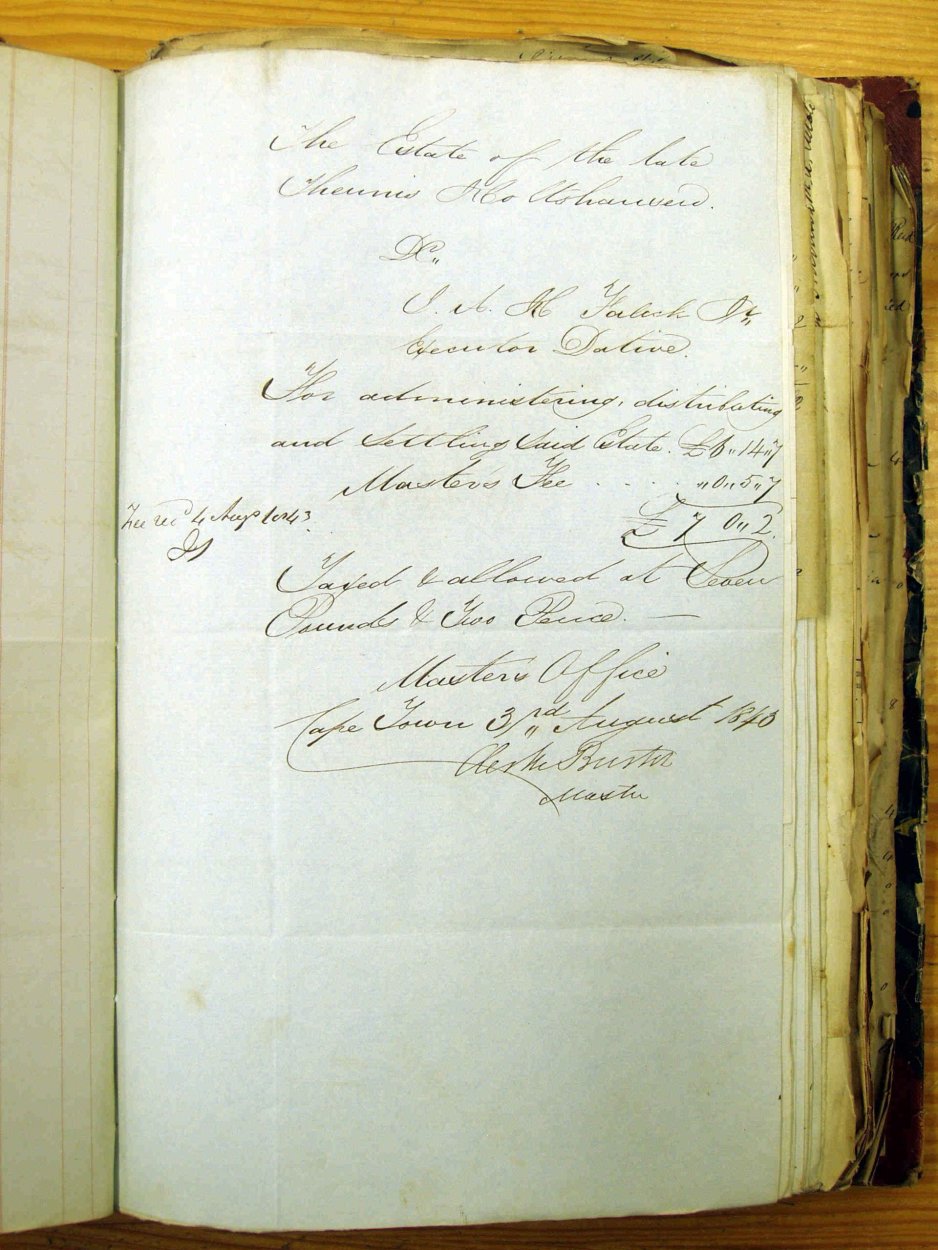 The Estate of the late
Theunis Holtshausen.
Dr,,
J. A. H. Falick Jr,,
Executor Dative.
For administering, distributing
and Settling Said Estate. £6,,14,,7
Master's Fee . . . . ,,0,,5,,7
£7 0,,2.
Fee recd 4 Augt 1843.
Taxed & allowed at Seven
Pounds & Two Pence. —
Master's Office
Cape Town 3rd,, August 1843
Master